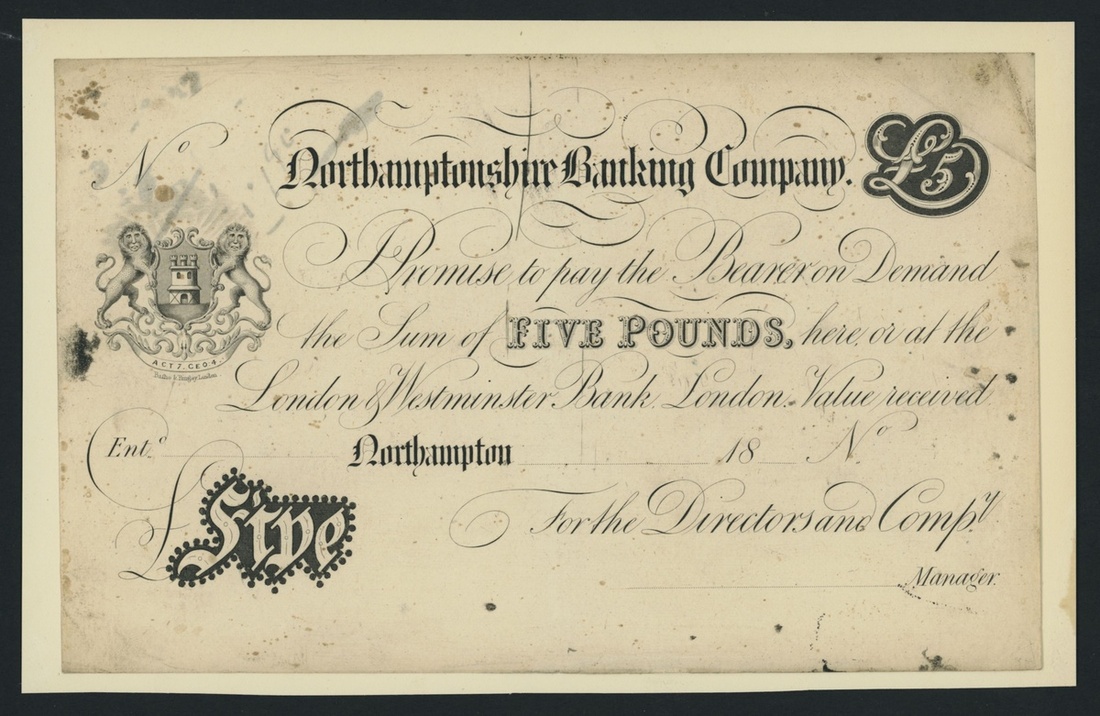 No
Northamptonshire Banking Company.
£5
I Promise to pay the Bearer on Demand
the Sum of FIVE POUNDS, here or at the
London & Westminster Bank London. Value received
ACT 7. GEO. 4.
London
Ent.d Northampton 18 No
£Five
For the Directors and Comp.y
Manager.